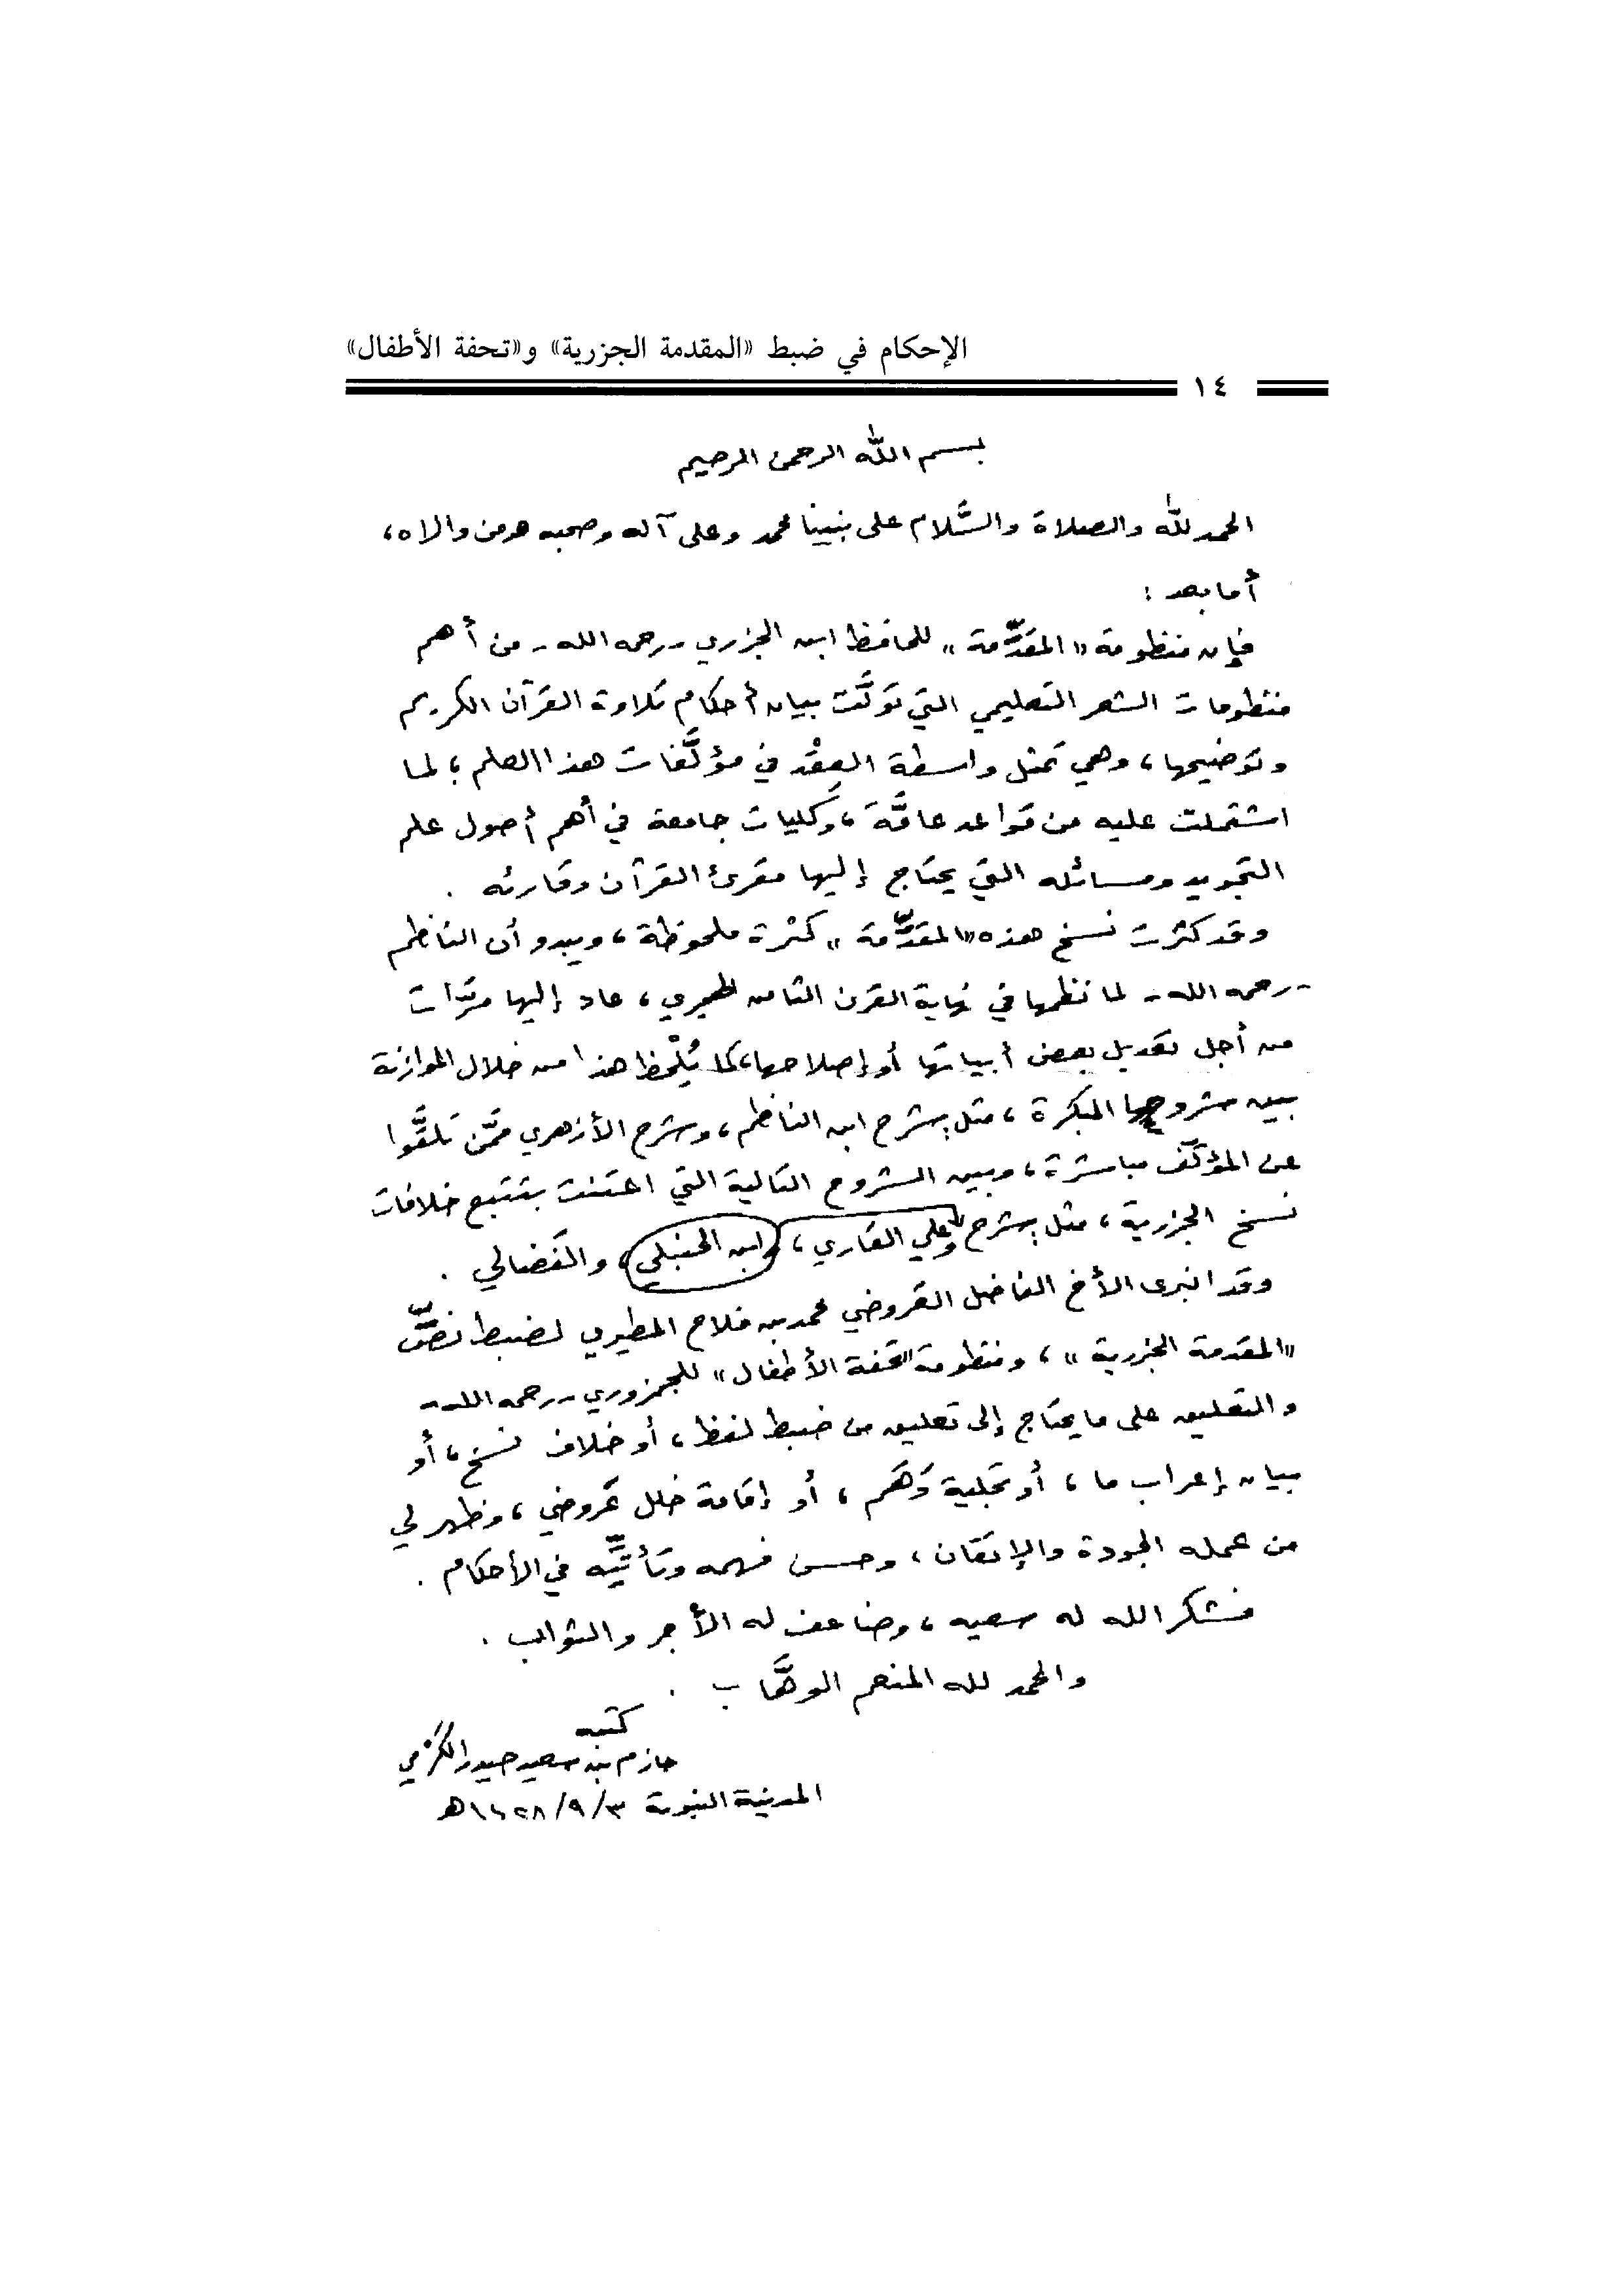 الإحكام في ضبط «المقدمة الجزرية» و«تحفة الأطفال»
١٤
بسم الله الرحمن الرحيم
الحمد لله والصلاة والسَّلام على نبينا محمد وعلى آله وصحبه ومن والاه،
أما بعد :
فإن منظومة «المقدِّمة» للحافظ ابن الجزري - رحمه الله - من أهم
منظومات الشعر التعليمي التي تولَّت بيان أحكام تلاوة القرآن الكريم
وتوضيحها، وهي تمثل واسطة العِقْد في مؤلَّفات هذا العلم؛ لما
اشتملت عليه من قواعد عامَّة، وكليات جامعة في أهم أصول علم
التجويد ومسائله التي يحتاج إليها مقرئ القرآن وقارئه .
وقد كثرت نسخ هذه «المقدِّمة» كثرة ملحوظة، ويبدو أن الناظم
- رحمه الله - لما نظمها في نهاية القرن الثامن الهجري، عاد إليها مرَّات
من أجل تعديل بعض أبياتها أو إصلاحها، كما يُلْحظ هذا من خلال الموازنة
بين شروحها المبكرة، مثل: شرح ابن الناظم، وشرح الأزهري ممَّن تلقَّوا
عن المؤلِّف مباشرة، وبين الشروح التالية التي اعتنت بتتبع خلافات
نسخ الجزرية، مثل: شرح وعلي القاري، ابن الحنبلي، والفَضالي .
وقد انبرى الأخ الفاضل العَروضي محمد بن فلاح المطيري لضبط نصِّ
«المقدمة الجزرية»، ومنظومة «تحفة الأطفال» للجمزوري - رحمه الله -
والتعليق على ما يحتاج إلى تعليق من ضبط لفظ، أو خلاف نسخ، أو
بيان إعراب ما، أو تجلية وَهَم، أو إقامة خلل عَروضي، وظهر لي
من عمله الجودة والإتقان، وحسن فهمه وتأتِّيه في الأحكام .
فشكر الله له سعيه، وضاعف له الأجر والثواب .
والحمد لله المنعم الوهَّاب .
كتبه
حازم بن سعيد حيدر الكَرْمي
المدينة النبوية ١٤٢٨/٩/٣هـ